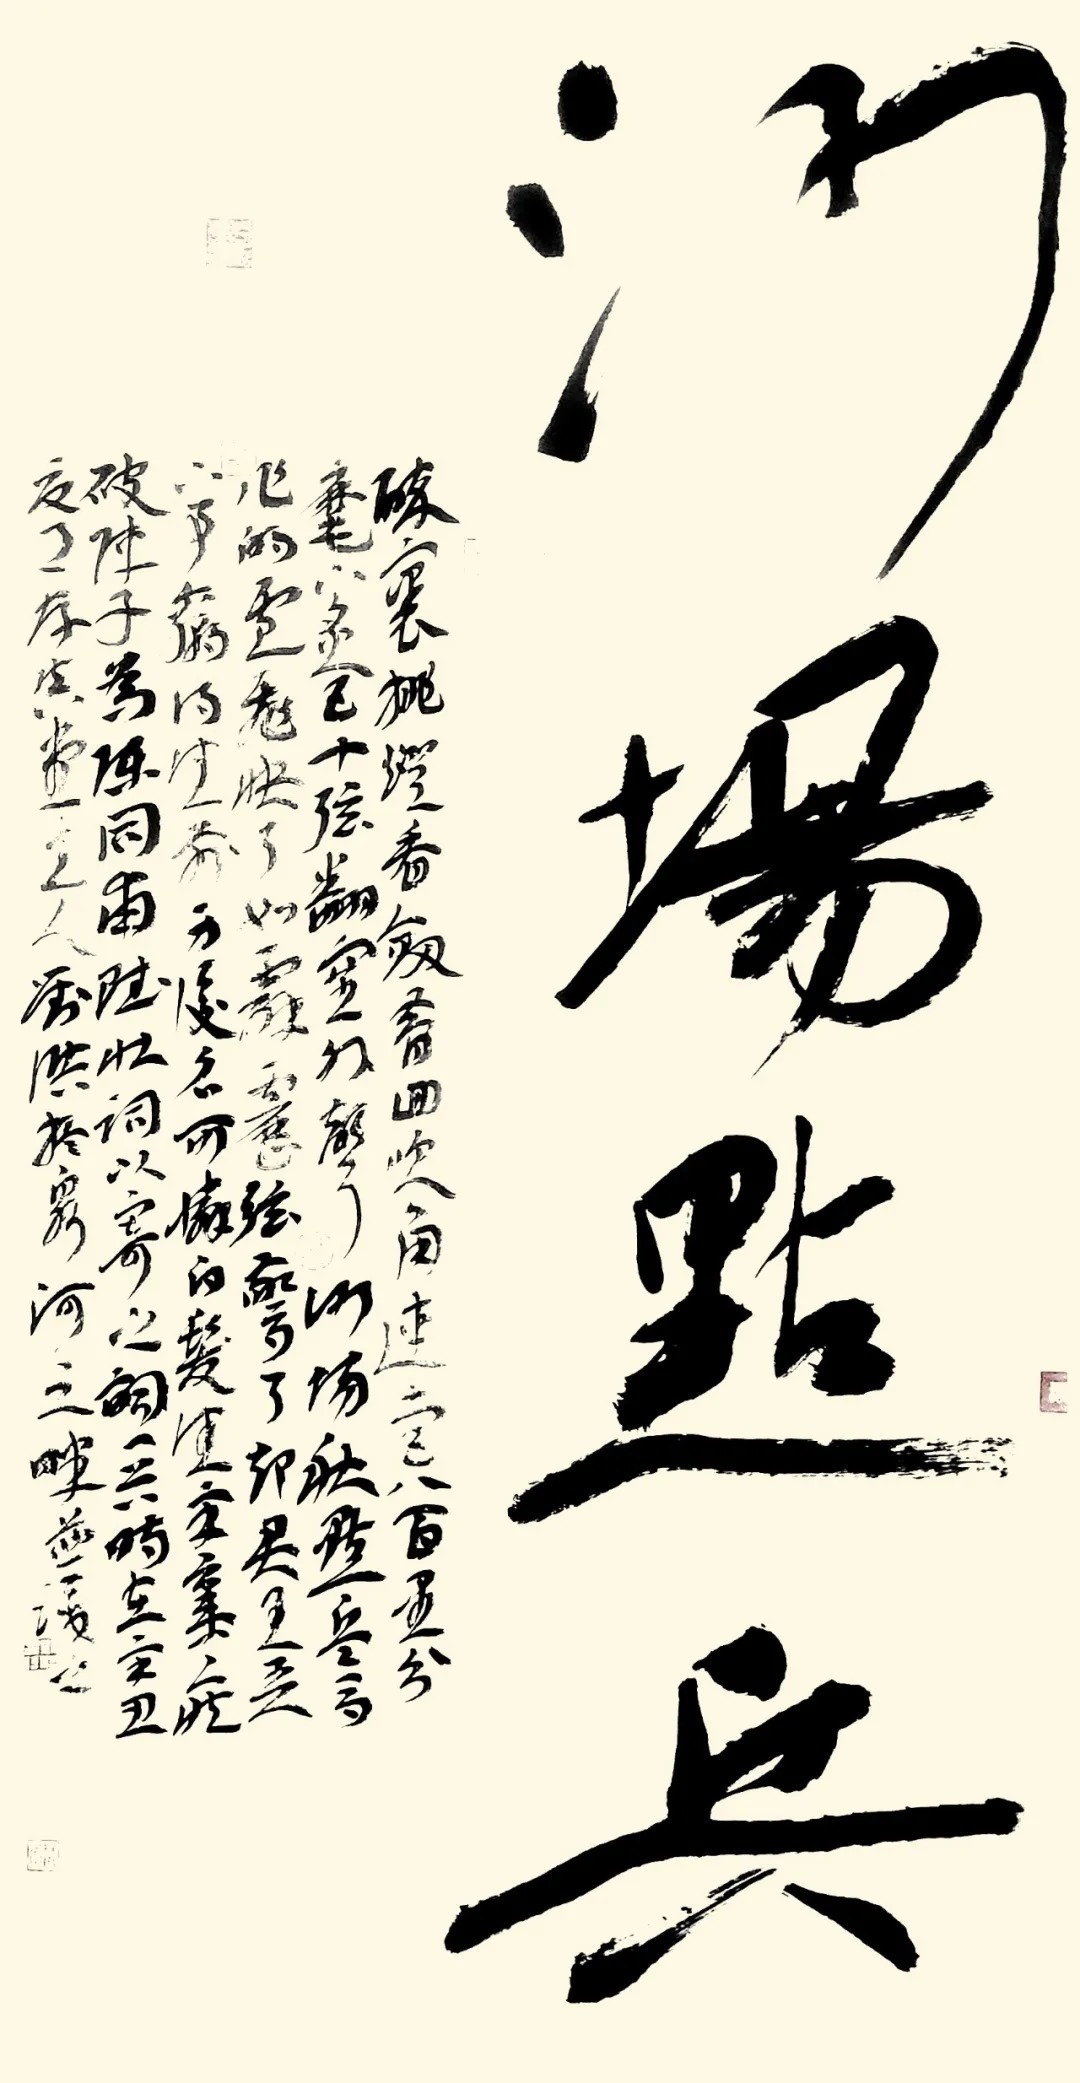 沙場點兵
醉裏挑燈看劍夢回吹角連營八百里分
麾下炙五十弦翻塞外聲沙場秋點兵馬
作的盧飛快弓如霹靂弦驚了卻君王天
下事贏得生前身後名可憐白髮生辛棄疾
破陣子為陳同甫賦壯詞以寄之詞一首時在辛丑
夏月存真堂主人劉洪河之畔並識之